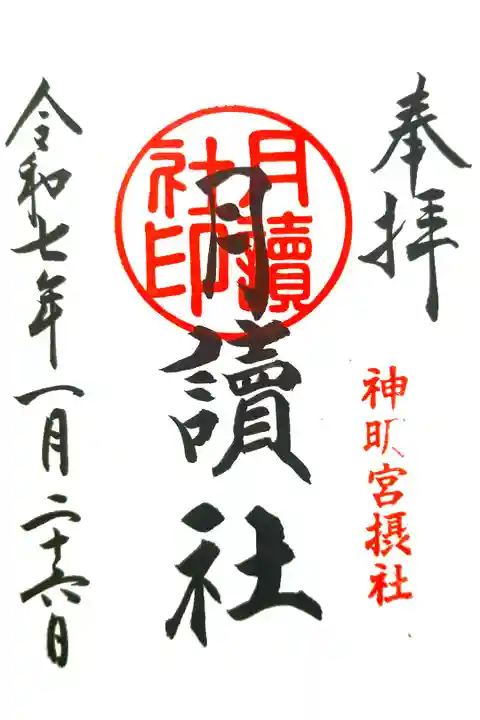 奉拝
神明宮摂社
月讀社印
月讀社
令和七年一月二十六日